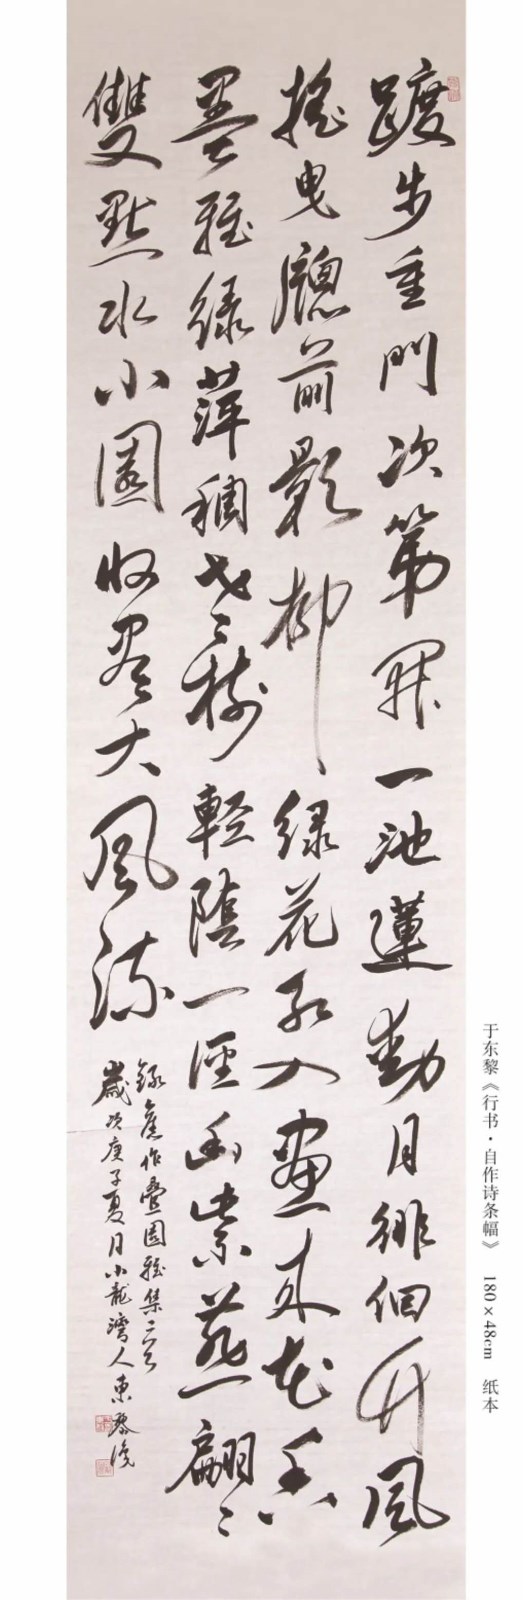 踱步重門次第開一池蓮動月徘徊竹風
搖曳牕前影柳綠花紅入畫來花香
墨雅綠萍稠老樹輕蔭一徑幽紫燕翩〻
雙點水小園收盡大風流
錄舊作疊園雅集二首
歲次庚子夏月小龍灣人東黎
于东黎《行书·自作诗条幅》 180×48cm 纸本